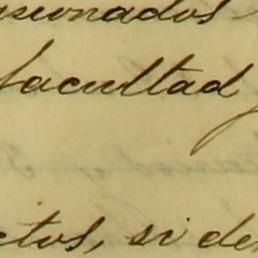 sionados
facultad
ctos, si de